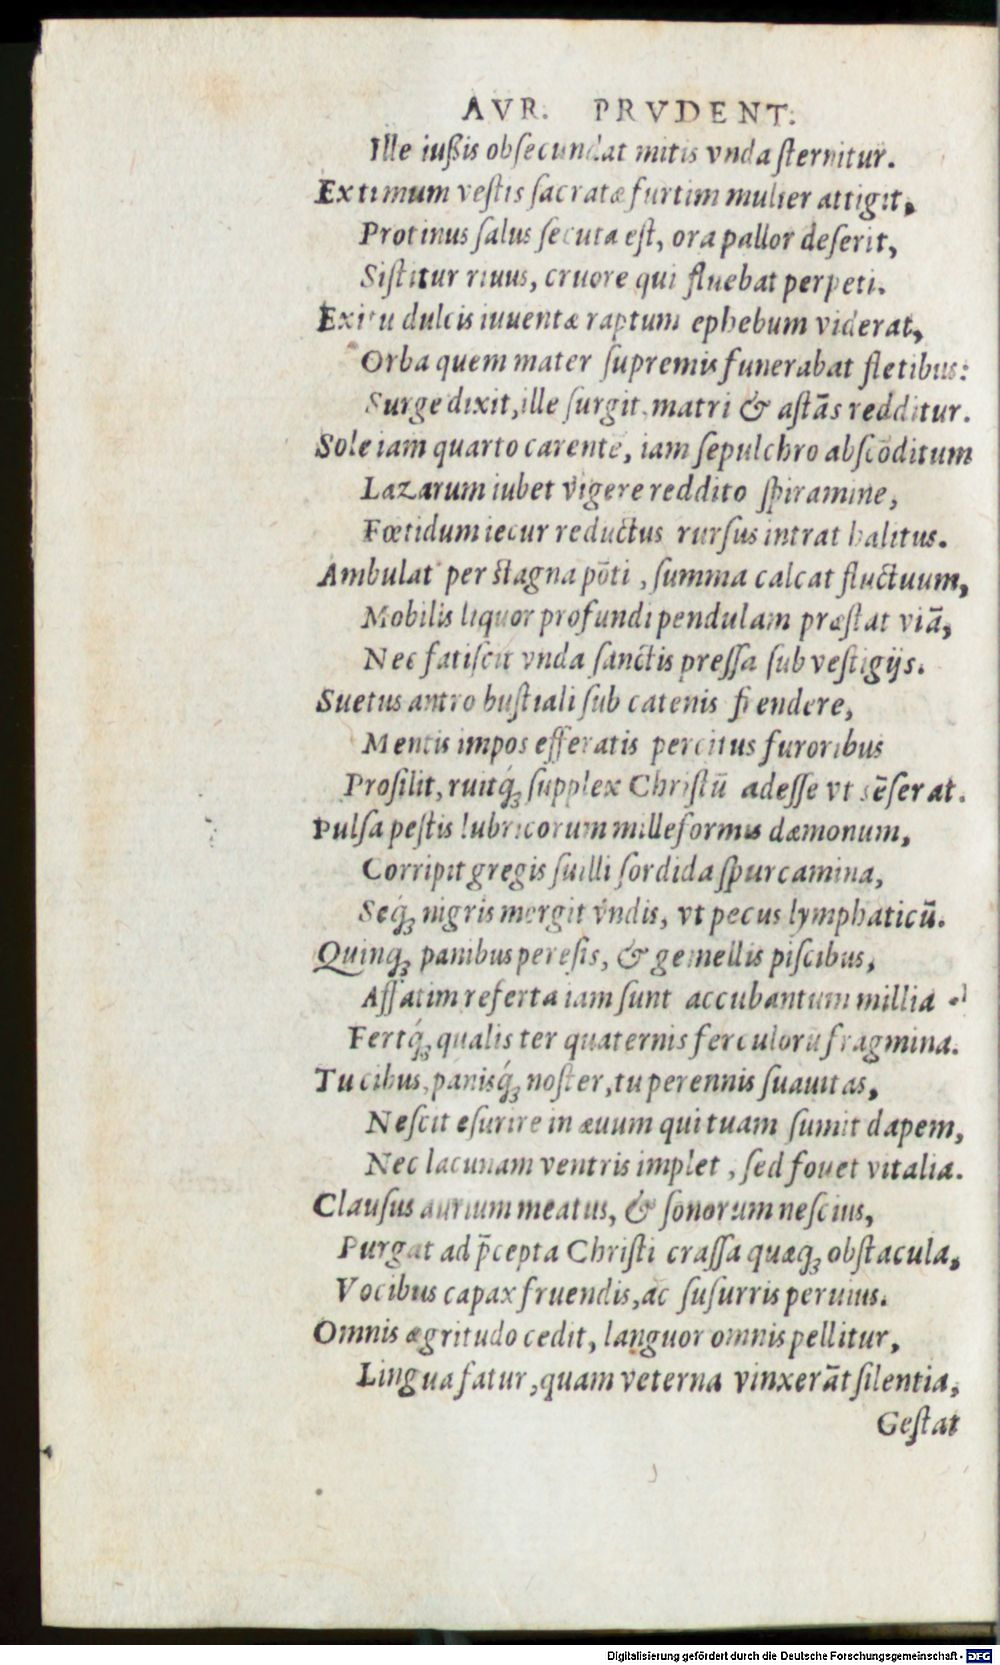 AVR. PRVDENT.
Ille iußis obſecundat mitis vnda ſternitur.
Extimum veſtis ſacratæ furtim mulier attigit,
Protinus ſalus ſecuta eſt, ora pallor deſerit,
Siſtitur riuus, cruore qui fluebat perpeti.
Exitu dulcis iuuentæ raptum ephebum viderat,
Orba quem mater ſupremis funerabat fletibus:
Surge dixit, ille ſurgit, matri & aſtãs redditur.
Sole iam quarto carente, iam ſepulchro abſcõditum
Lazarum iubet vigere reddito ſpiramine,
Fœtidum iecur reductus rurſus intrat halitus.
Ambulat per ſtagna põti, ſumma calcat fluctuum,
Mobilis liquor profundi pendulam præſtat viã,
Nec fatiſcit vnda ſanctis preſſa ſub veſtigijs.
Suetus antro buſtiali ſub catenis frendere,
Mentis impos efferatis percitus furoribus
Proſilit, ruitq́ꝫ ſupplex Chriſtũ adeſſe vt sẽſerat.
Pulſa peſtis lubricorum milleformis dæmonum,
Corripit gregis ſuilli ſordida ſpurcamina,
Seq́ꝫ nigris mergit vndis, vt pecus lymphaticũ.
Quinqꝫ panibus pereſis, & gemellis piſcibus,
Aſſatim referta iam ſunt accubantum millia
Fertq́ꝫ qualis ter quaternis ferculorũ fragmina.
Tu cibus, panisq́ꝫ noſter, tu perennis ſuauitas,
Neſcit eſurire in æuum qui tuam ſumit dapem,
Nec lacunam ventris implet, ſed fouet vitalia.
Clauſus aurium meatus, & ſonorum neſcius,
Purgat ad p̃cepta Chriſti craſſa quæqꝫ obſtacula,
Vocibus capax fruendis, ac ſuſurris peruius.
Omnis ægritudo cedit, languor omnis pellitur,
Lingua fatur, quam veterna vinxerãt ſilentia,
Geſtat
Digitalisierung gefördert durch die Deutsche Forschungsgemeinschaft - DFG